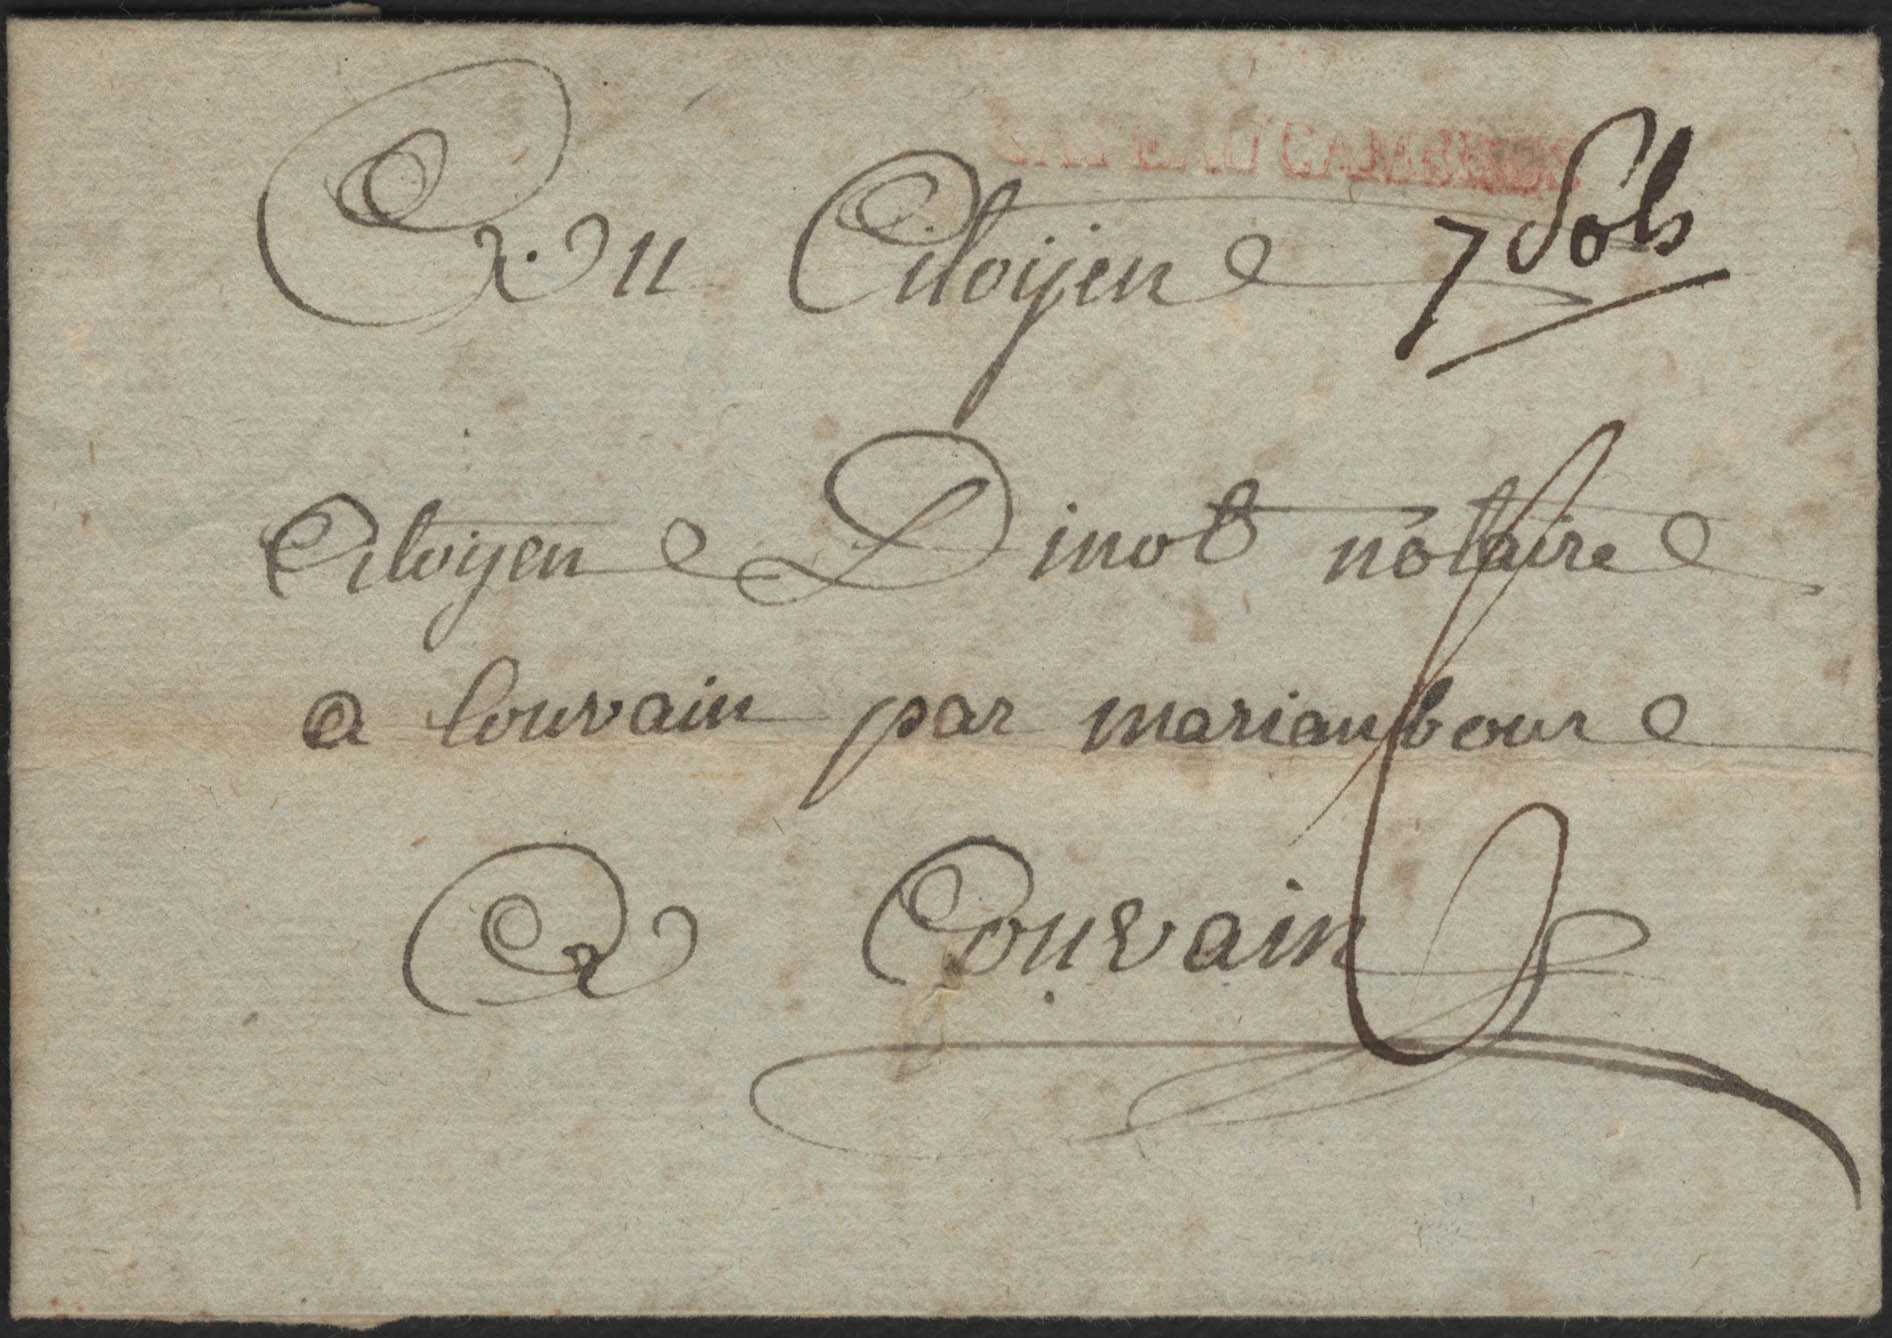 CATEAU CAMBRESIS
7 Sols
Au Citoyen
Citoyen Dinot notaire
a Couvain par mariambour
6
A Couvain